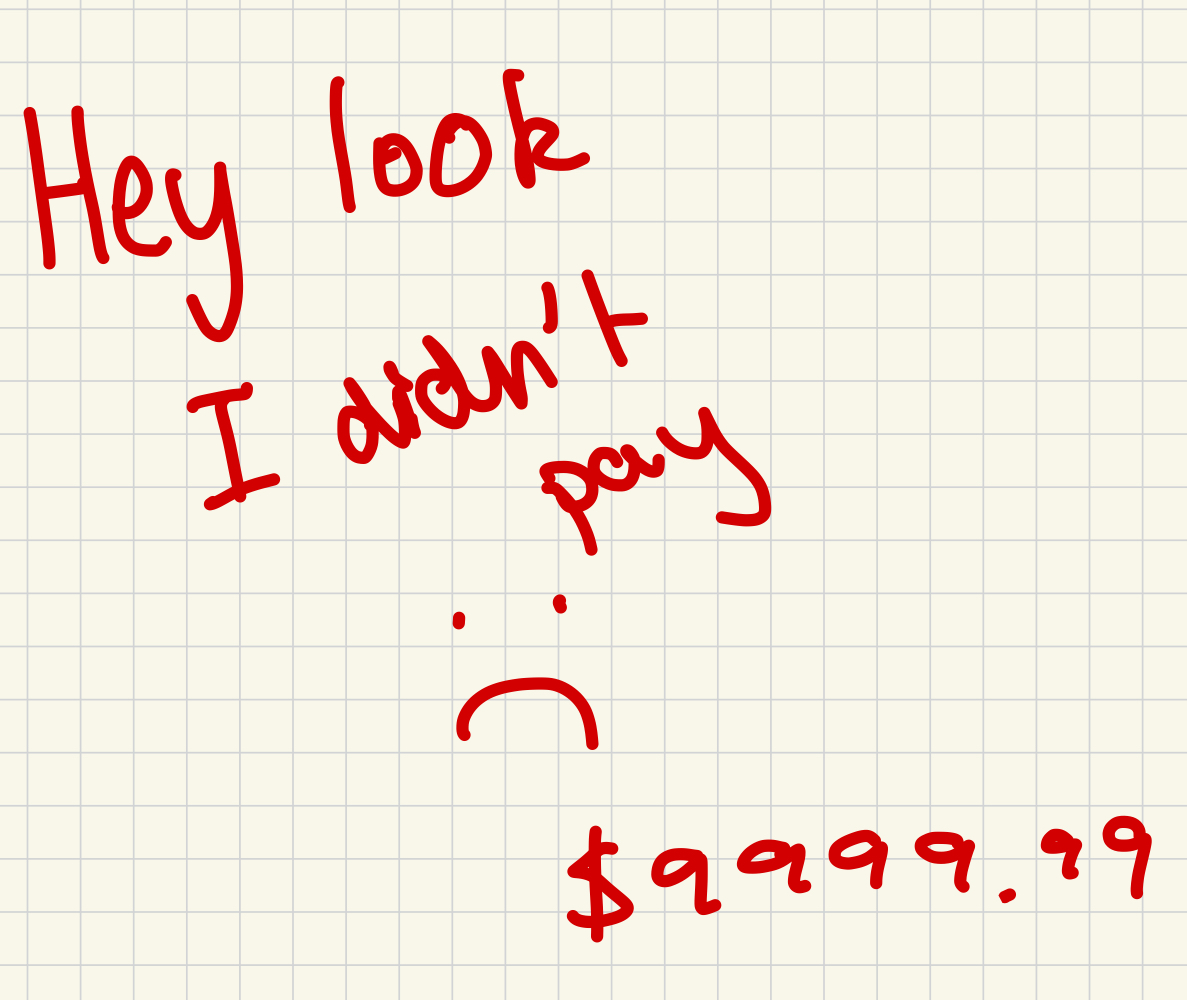 Hey look
I didn't
pay
$9999.99